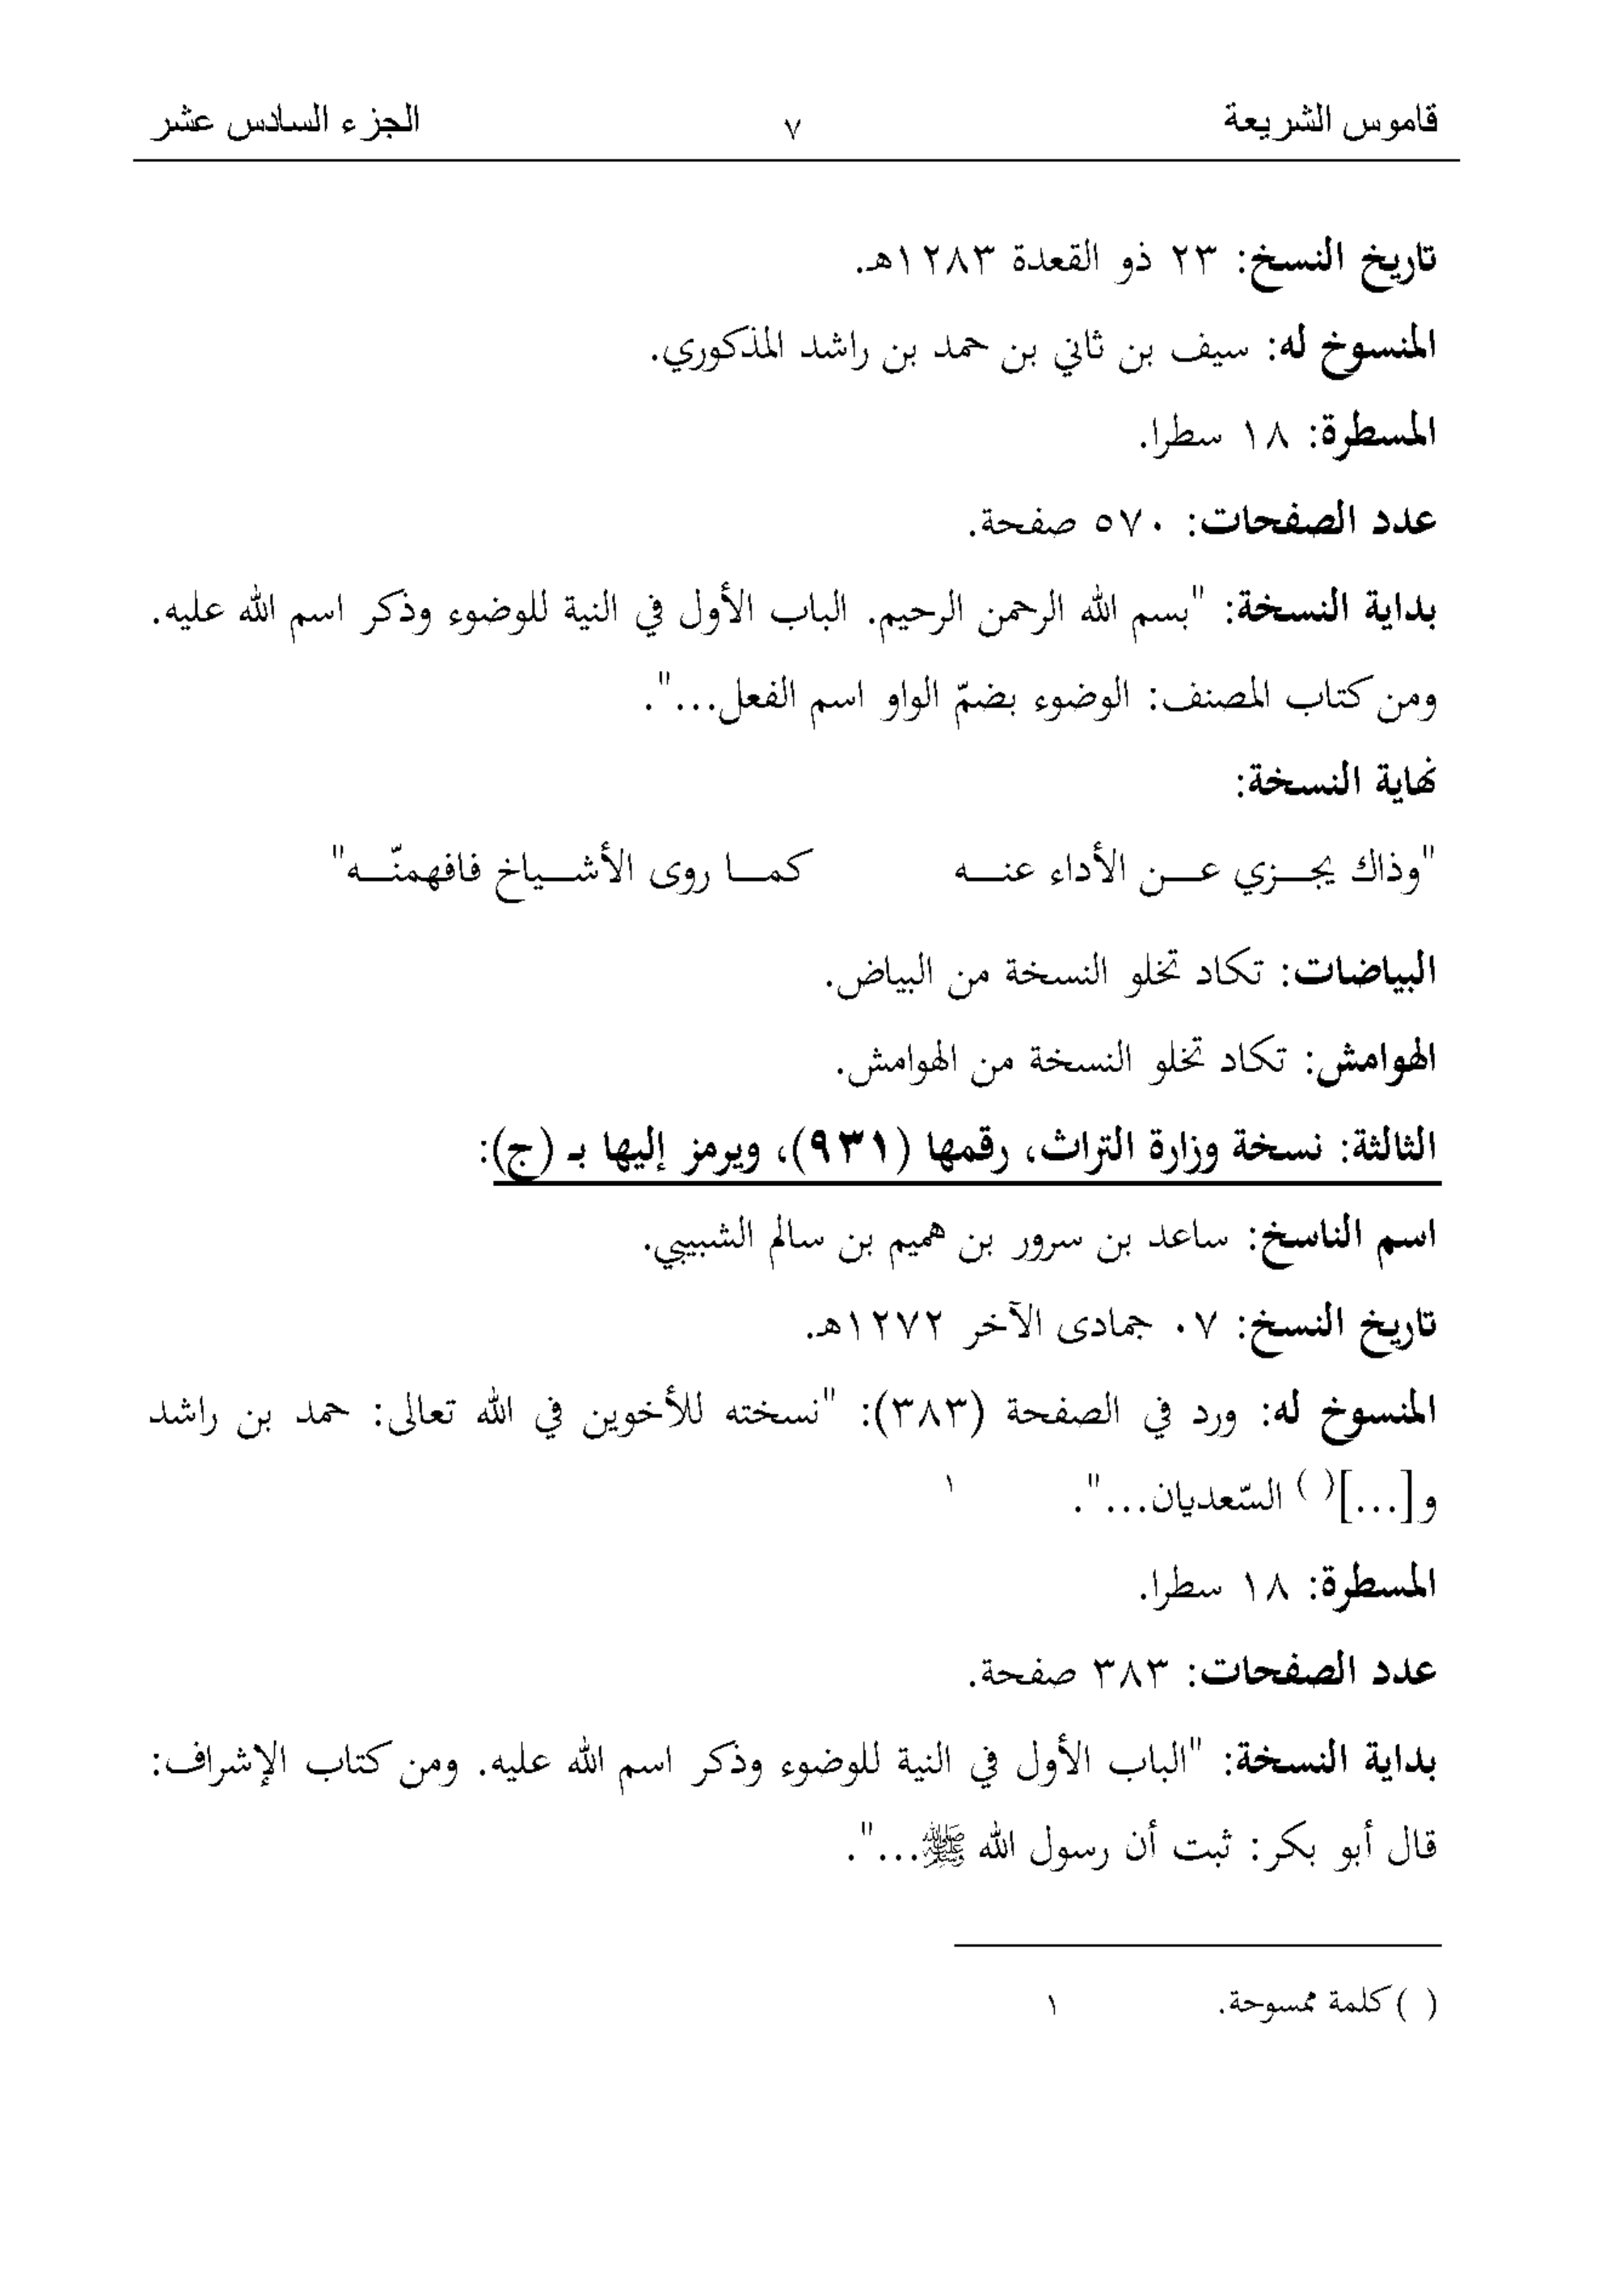 قاموس الشريعة ٧ الجزء السادس عشر
تاريخ النسخ: ٢٣ ذو القعدة ١٢٨٣هـ.
المنسوخ له: سيف بن ثاني بن حمد بن راشد المذكوري.
المسطرة: ١٨ سطرا.
عدد الصفحات: ٥٧٠ صفحة.
بداية النسخة: "بسم الله الرحمن الرحيم. الباب الأول في النية للوضوء وذكر اسم الله عليه.
ومن كتاب المصنف: الوضوء بضمّ الواو اسم الفعل...".
نهاية النسخة:
"وذاك يجـــزي عـــن الأداء عنـــه كمـــا روى الأشـــياخ فافهمنّـــه"
البياضات: تكاد تخلو النسخة من البياض.
الهوامش: تكاد تخلو النسخة من الهوامش.
الثالثة: نسخة وزارة التراث، رقمها (٩٣١)، ويرمز إليها بـ (ج):
اسم الناسخ: ساعد بن سرور بن هميم بن سالم الشبيبي.
تاريخ النسخ: ٠٧ جمادى الآخر ١٢٧٢هـ.
المنسوخ له: ورد في الصفحة (٣٨٣): "نسخته للأخوين في الله تعالى: حمد بن راشد
و[...]( ) السّعديان...". ١
المسطرة: ١٨ سطرا.
عدد الصفحات: ٣٨٣ صفحة.
بداية النسخة: "الباب الأول في النية للوضوء وذكر اسم الله عليه. ومن كتاب الإشراف:
قال أبو بكر: ثبت أن رسول الله ﷺ...".
( ) كلمة ممسوحة. ١